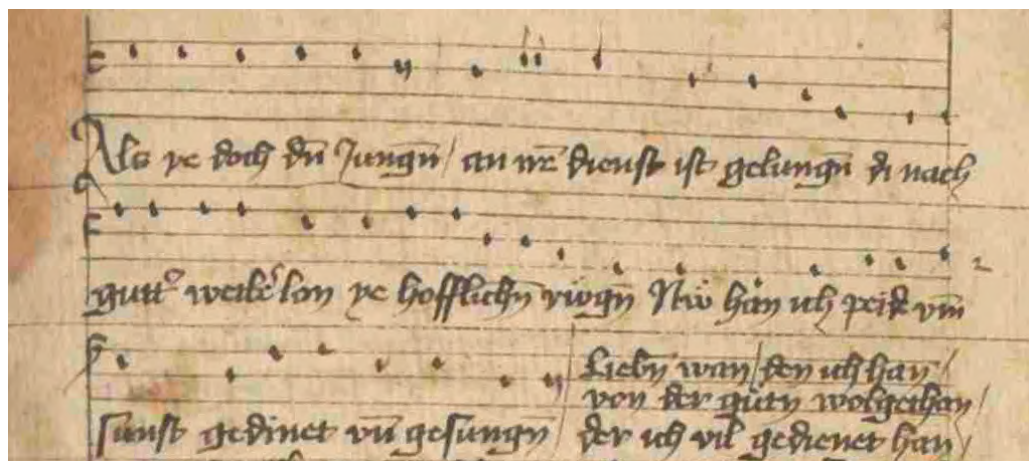 Als ye doch dn̄ Jungn̄ / an irē dienst ist gelungn̄ di nach
gutt' weibe lon ye hofflichn̄ rūgn̄ Nū han ich peid vm̄
sunst gedinet vn̄ gesungn̄
liebn̄ wan / den ich han /
von der gutn wolgethan /
der ich vil gedienet han /